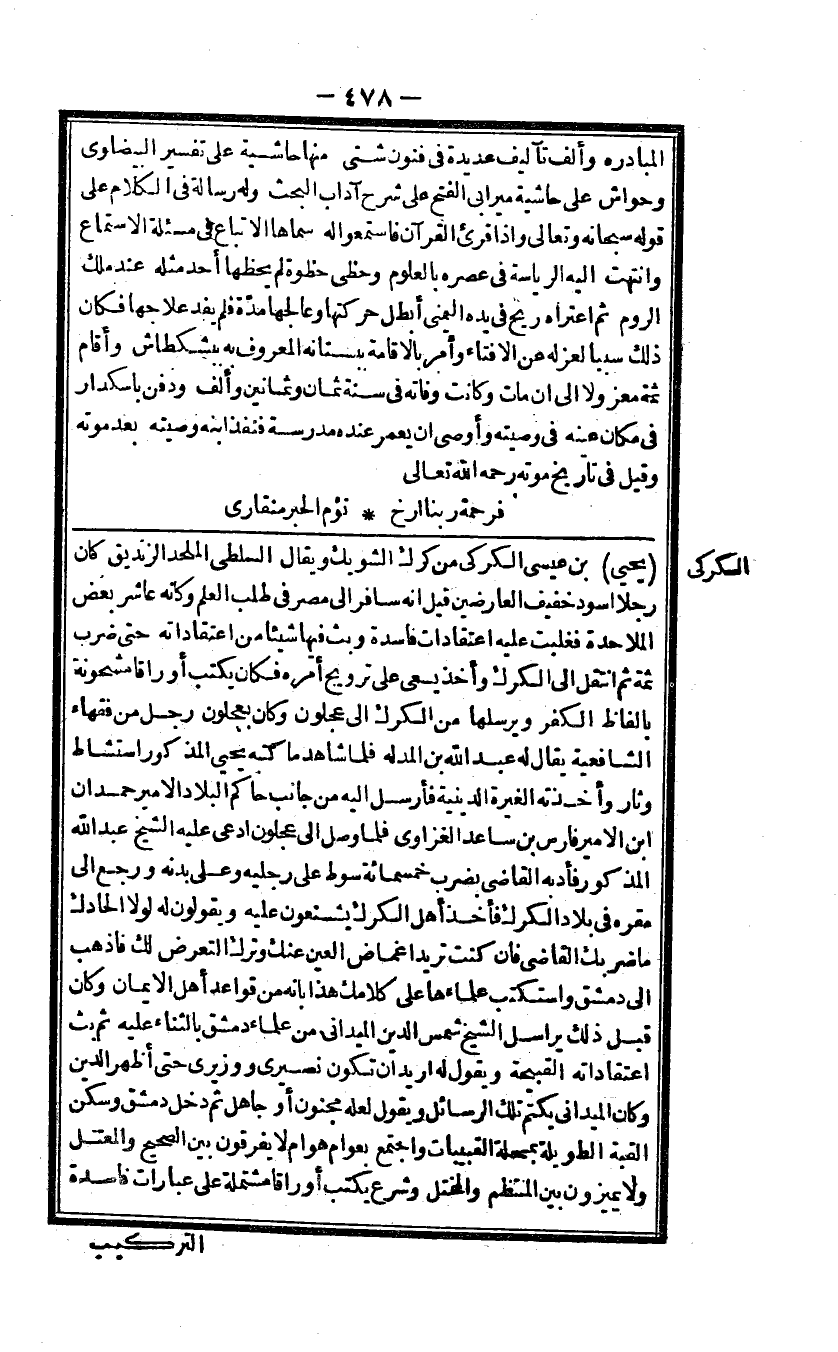 — ٤٧٨ —
المبادره وألف تآليف عديدة فى فنون شتى منها حاشية على تفسير البيضاوى
وحواش على حاشية ميرابى الفتح على شرح آداب البحث وله رسالة فى الكلام على
قوله سبحانه وتعالى واذا قرئ القرآن فاستمعوا له سماها الاتباع فى مسئلة الاستماع
وانتهت اليه الرياسة فى عصره بالعلوم وحظى حظوة لم يحظها أحد مثله عند ملك
الروم ثم اعتراه ريح فى يده اليمنى أبطل حركتها وعالجها مدّة فلم يفد علاجها فكان
ذلك سببا لعزله عن الافتاء وأمر بالاقامة ببستانه المعروف به ببشكطاش وأقام
ثمة معزولا الى ان مات وكانت وفاته فى سنة ثمان وثمانين وألف ودفن باسكدار
فى مكان عينه فى وصيته وأوصى ان يعمر عنده مدرسة فنفذ ابنه وصيته بعد موته
وقيل فى تاريخ موته رحمه الله تعالى
فرحمة ربنا ارخ * تؤم الحبر منقارى
الكركى
(يحيى) بن عيسى الكركى من كرك الشوبك ويقال السلطى الملحد الزنديق كان
رجلا اسود خفيف العارضين قيل انه سافر الى مصر فى طلب العلم وكأنه عاشر بعض
الملاحدة فغلبت عليه اعتقادات فاسدة وبث فيها شيئا من اعتقاداته حتى ضرب
ثمة ثم انتقل الى الكرك وأخذ يسعى على ترويج أمره فكان يكتب أوراقا مشحونة
بالفاظ الكفر ويرسلها من الكرك الى عجلون وكان بعجلون رجل من فقهاء
الشافعية يقال له عبد الله بن المدله فلما شاهد ما كتبه يحيى المذكور استشاط
وثار وأخذته الغيرة الدينية فأرسل اليه من جانب حاكم البلاد الامير حمدان
ابن الامير فارس بن ساعد الغزاوى فلما وصل الى عجلون ادعى عليه الشيخ عبد الله
المذكور فأدبه القاضى بضرب خمسمائة سوط على رجليه وعلى بدنه ورجع الى
مقره فى بلاد الكرك فأخذ أهل الكرك يشنعون عليه ويقولون له لولا الحادك
ماضربك القاضى فان كنت تريد اغماض العين عنك وترك التعرض لك فاذهب
الى دمشق واستكتب علماءها على كلامك هذا بانه من قواعد أهل الايمان وكان
قبل ذلك يراسل الشيخ شمس الدين الميدانى من علماء دمشق بالثناء عليه ثم بث
اعتقاداته القبيحة ويقول له اريد أن تكون نصيرى ووزيرى حتى أظهر الدين
وكان الميدانى يكتم تلك الرسائل ويقول لعله مجنون أو جاهل ثم دخل دمشق وسكن
القبة الطويلة بمحلة القبيبات واجتمع بعوام هوام لا يفرقون بين الصحيح والمعتل
ولا يميزون بين المنتظم والمختل وشرع يكتب أوراقا مشتملة على عبارات فاسدة
التركيب